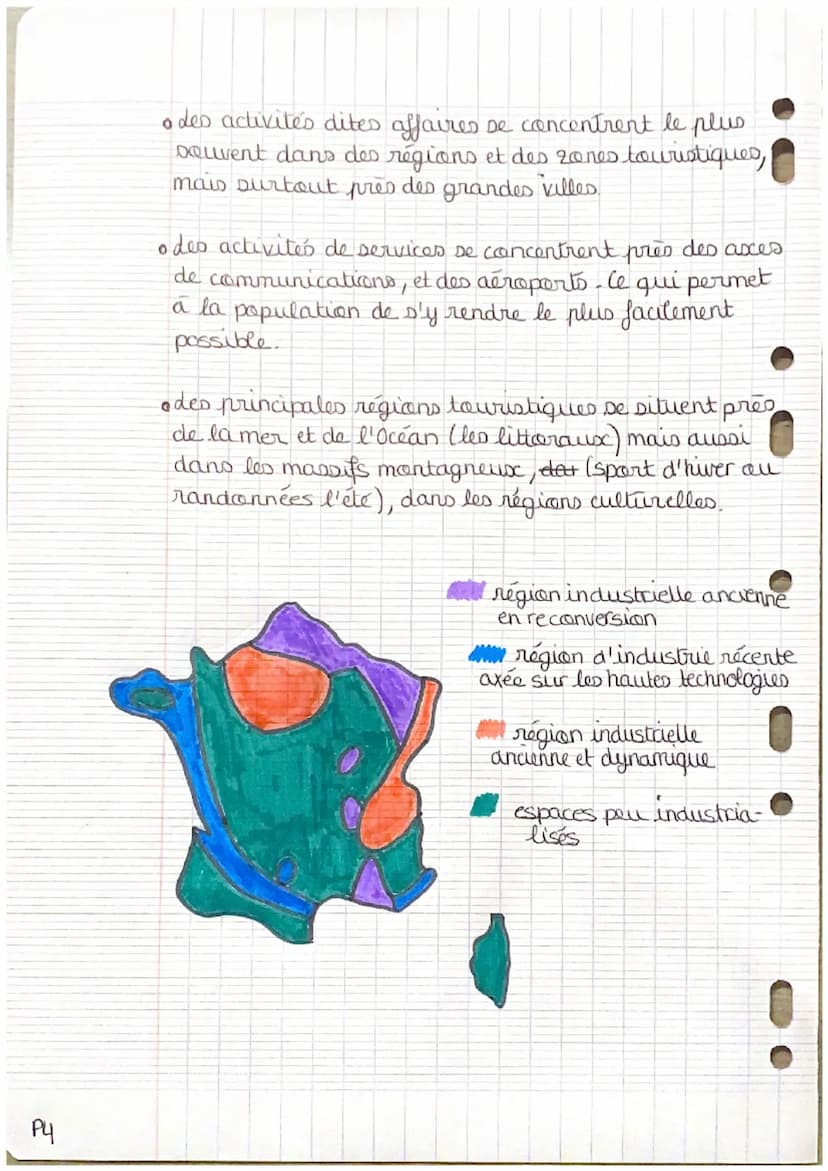 des activités dites affaires se concentrent le plus
souvent dans des régions et des zones touristiques,
mais surtout près des grandes villes.
des activités de services se concentrent près des axes
de communications, et des aéroports. Ce qui permet
à la population de s'y rendre le plus facilement
possible.
des principales régions touristiques se situent près
de la mer et de l'Océan (les littoraux) mais aussi
dans les massifs montagneux, (sport d'hiver ou
randonnées l'été), dans les régions culturelles.
région industrielle ancienne
en reconversion
région d'industrie récente
axée sur les hautes technologies
région industrielle
ancienne et dynamique
espaces peu industria-
lisés
P4